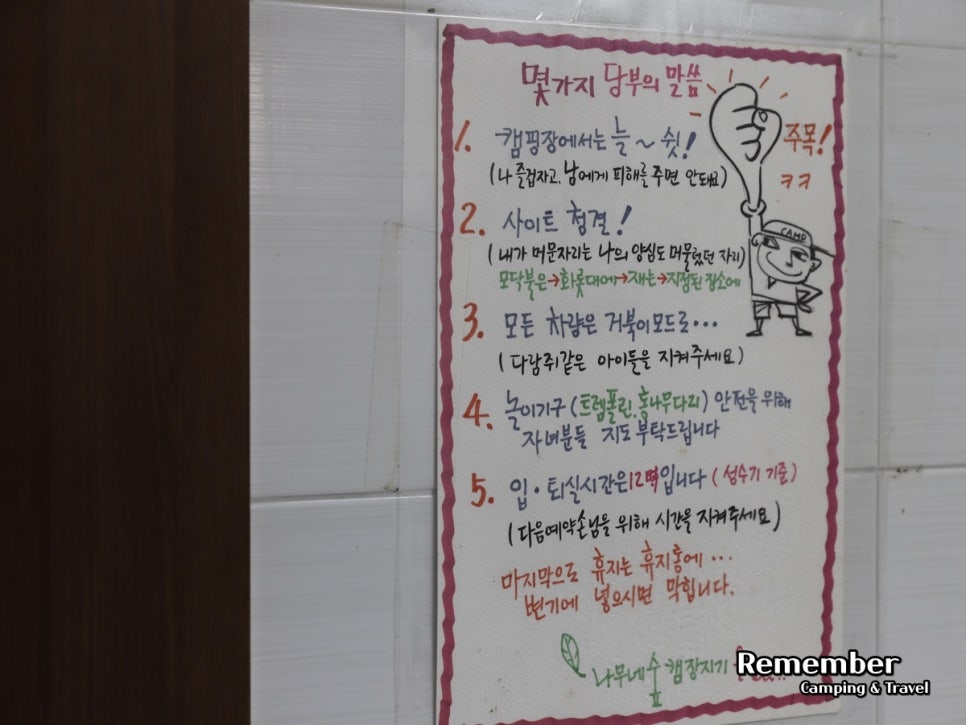 몇가지 당부의 말씀
1. 캠핑장에서는 늘~ 쉿!
(나 즐겁자고, 남에게 피해를 주면 안돼요)
주목!
ㅋㅋ
CAMP
2. 사이트 청결!
(내가 머문자리는 나의 양심도 머물렀던 자리)
모닥불은→화롯대에→재는→지정된 장소에
3. 모든 차량은 거북이모드로...
(다람쥐같은 아이들을 지켜주세요)
4. 놀이기구(트렘폴린, 통나무다리) 안전을 위해
자녀분들 지도 부탁드립니다
5. 입·퇴실시간은 12시입니다 (성수기 기준)
(다음예약손님을 위해 시간을 지켜주세요)
마지막으로 휴지는 휴지통에...
변기에 넣으시면 막힙니다.
나무네숲 캠장지기
Remember
Camping & Travel